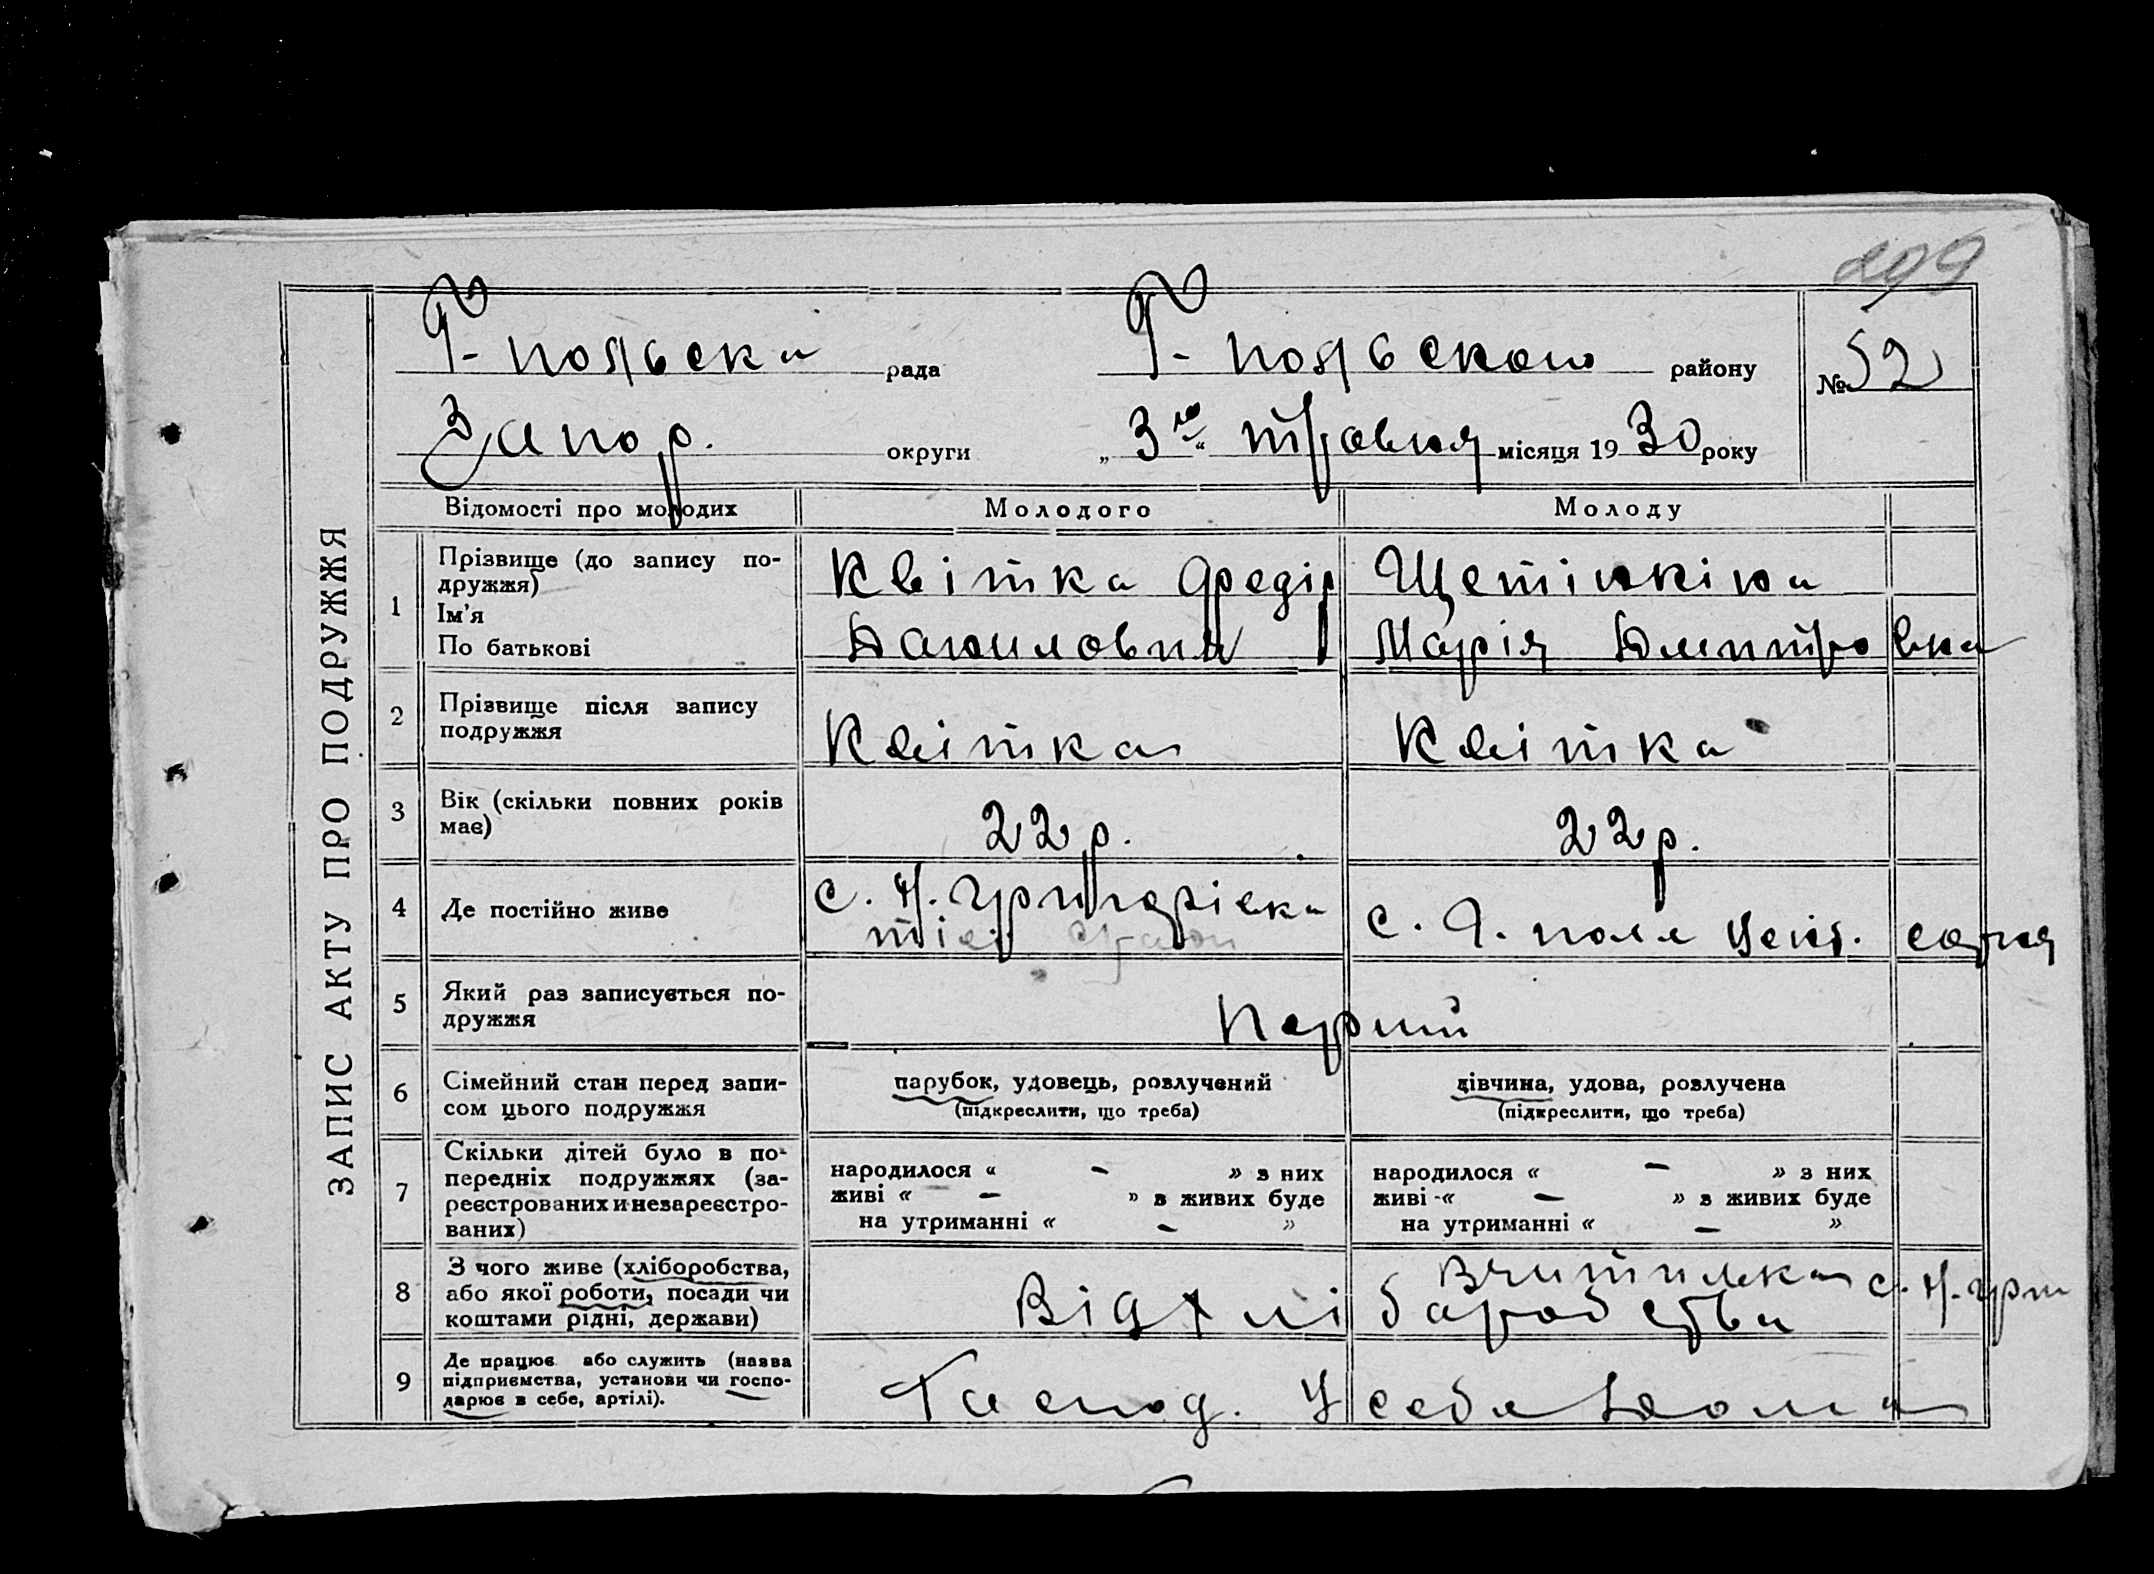 299
Г- польска рада Г- польского району №52
Запор. округи „3го“ травня місяця 1930 року
ЗАПИС АКТУ ПРО ПОДРУЖЖЯ
Відомості про молодих Молодого Молоду
1 Прізвище (до запису по-
дружжя)
Ім'я
По батькові
Квітка Федір
Данилович
Щетінкіна
Марія Дмитровна
2 Прізвище після запису
подружжя
Квітка Квітка
3 Вік (скільки повних років
має)
22 р. 22 р.
4 Де постійно живе
с. Н. Григорівка
с. Г. поле
5 Який раз записується по-
дружжя
Перший
6 Сімейний стан перед запи-
сом цього подружжя
парубок, удовець, розлучений
(підкреслити, що треба)
дівчина, удова, розлучена
(підкреслити, що треба)
7 Скільки дітей було в по-
передніх подружжях (за-
реєстрованих и незареєстро-
ваних)
народилося « - » з них
живі « - » в живих буде
на утриманні « - »
народилося « - » з них
живі « - » в живих буде
на утриманні « - »
8 З чого живе (хліборобства,
або якої роботи, посади чи
коштами рідні, держави)
Вчителька с. Н. Гри
Від хліборобства
9 Де працює або служить (назва
підприємства, установи чи госпо-
дарює в себе, артілі).
Господ. У себе дома